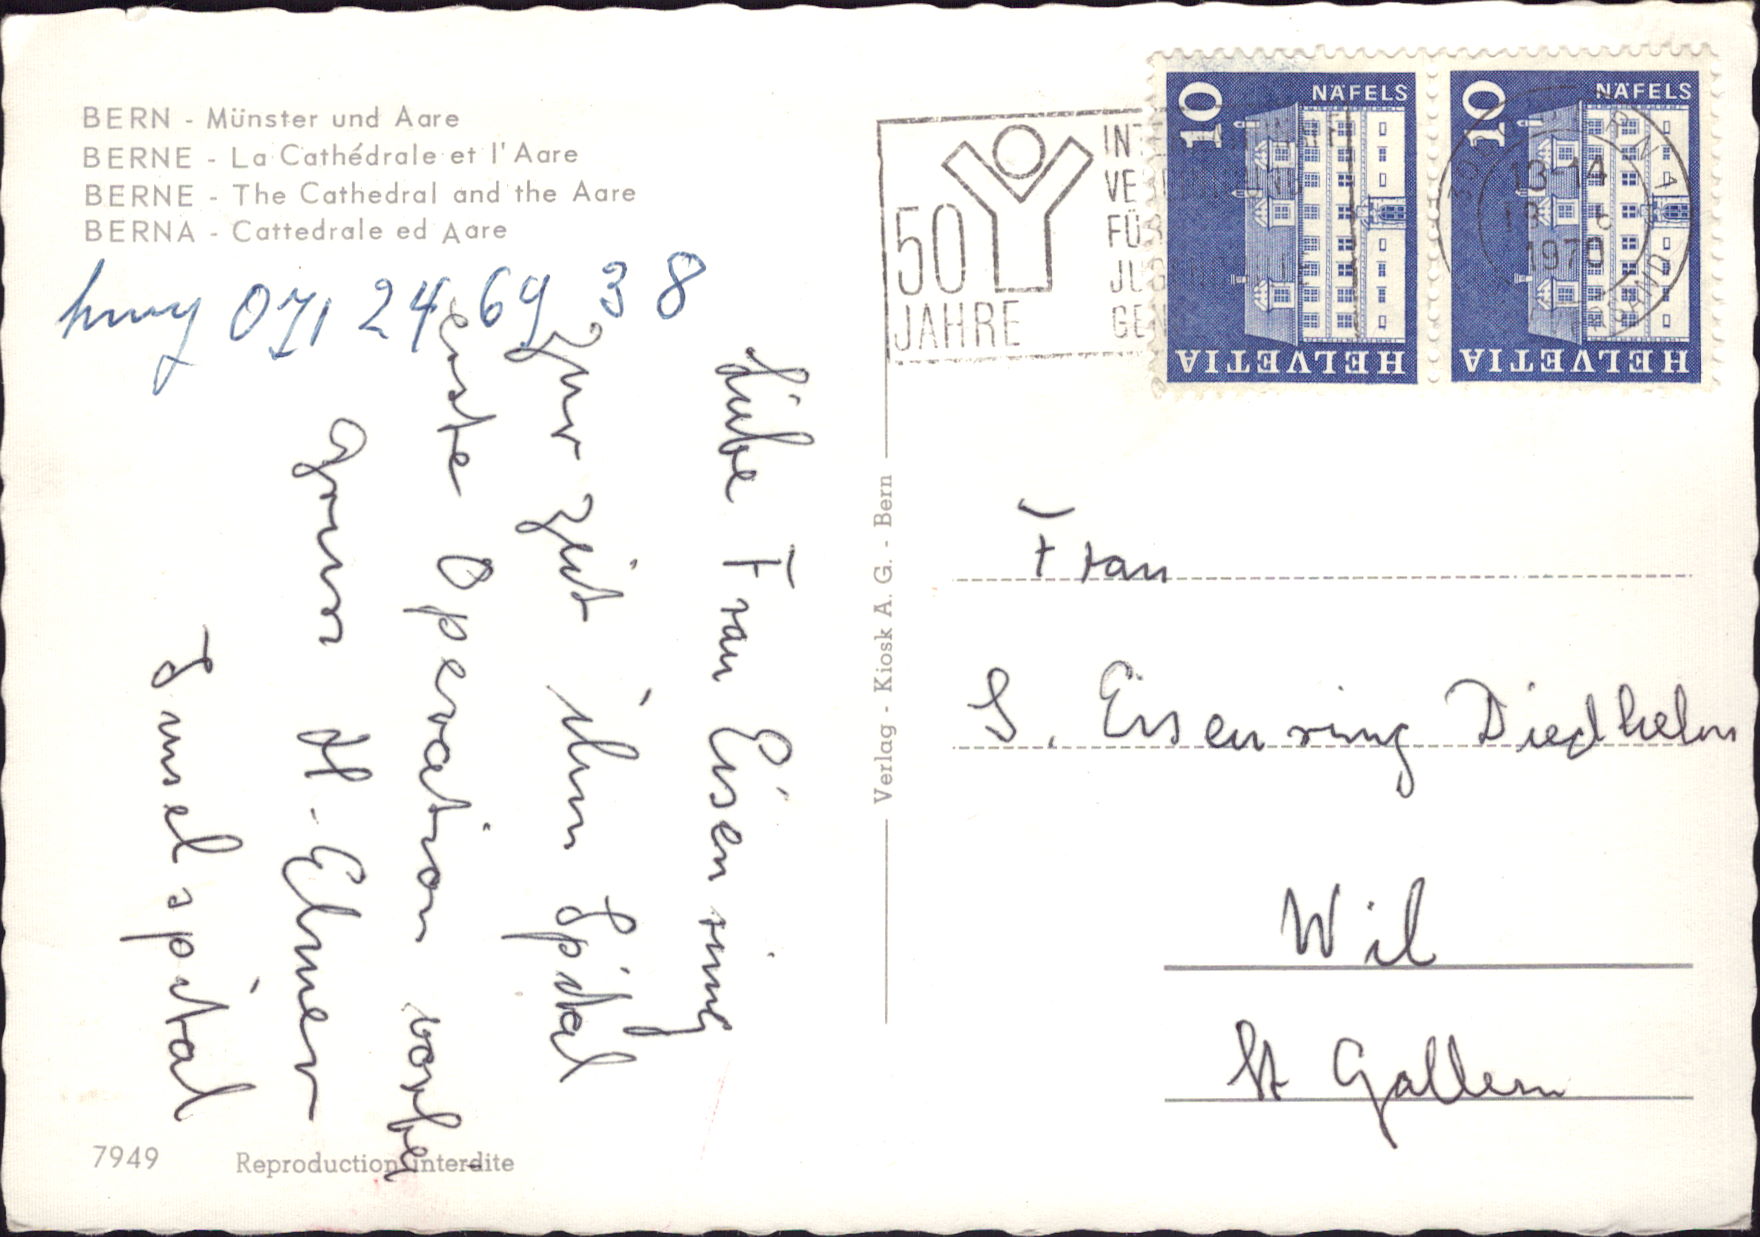 BERN - Münster und Aare
BERNE - La Cathédrale et l'Aare
BERNE - The Cathedral and the Aare
BERNA - Cattedrale ed Aare
071 24 69 38
Liebe Frau Eisenring
Zur Zeit im Spital
erste Operation vorbei
Gruss H. Elmer
Inselspital
7949
Reproduction interdite
Verlag - Kiosk A. G. - Bern
50
JAHRE
FÜR
10
NÄFELS
HELVETIA
10
NÄFELS
HELVETIA
13-14
1970
Frau
S. Eisenring Diedhelm
Wil
St Gallen